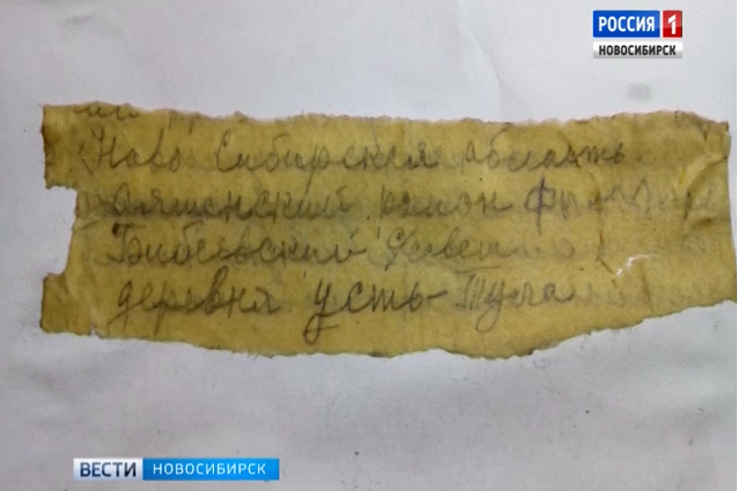 РОССИЯ 1
НОВОСИБИРСК
Ново Сибирская область
Ояшенский район
Бибеевский с/совет
деревня Усть-Тула
ВЕСТИ НОВОСИБИРСК